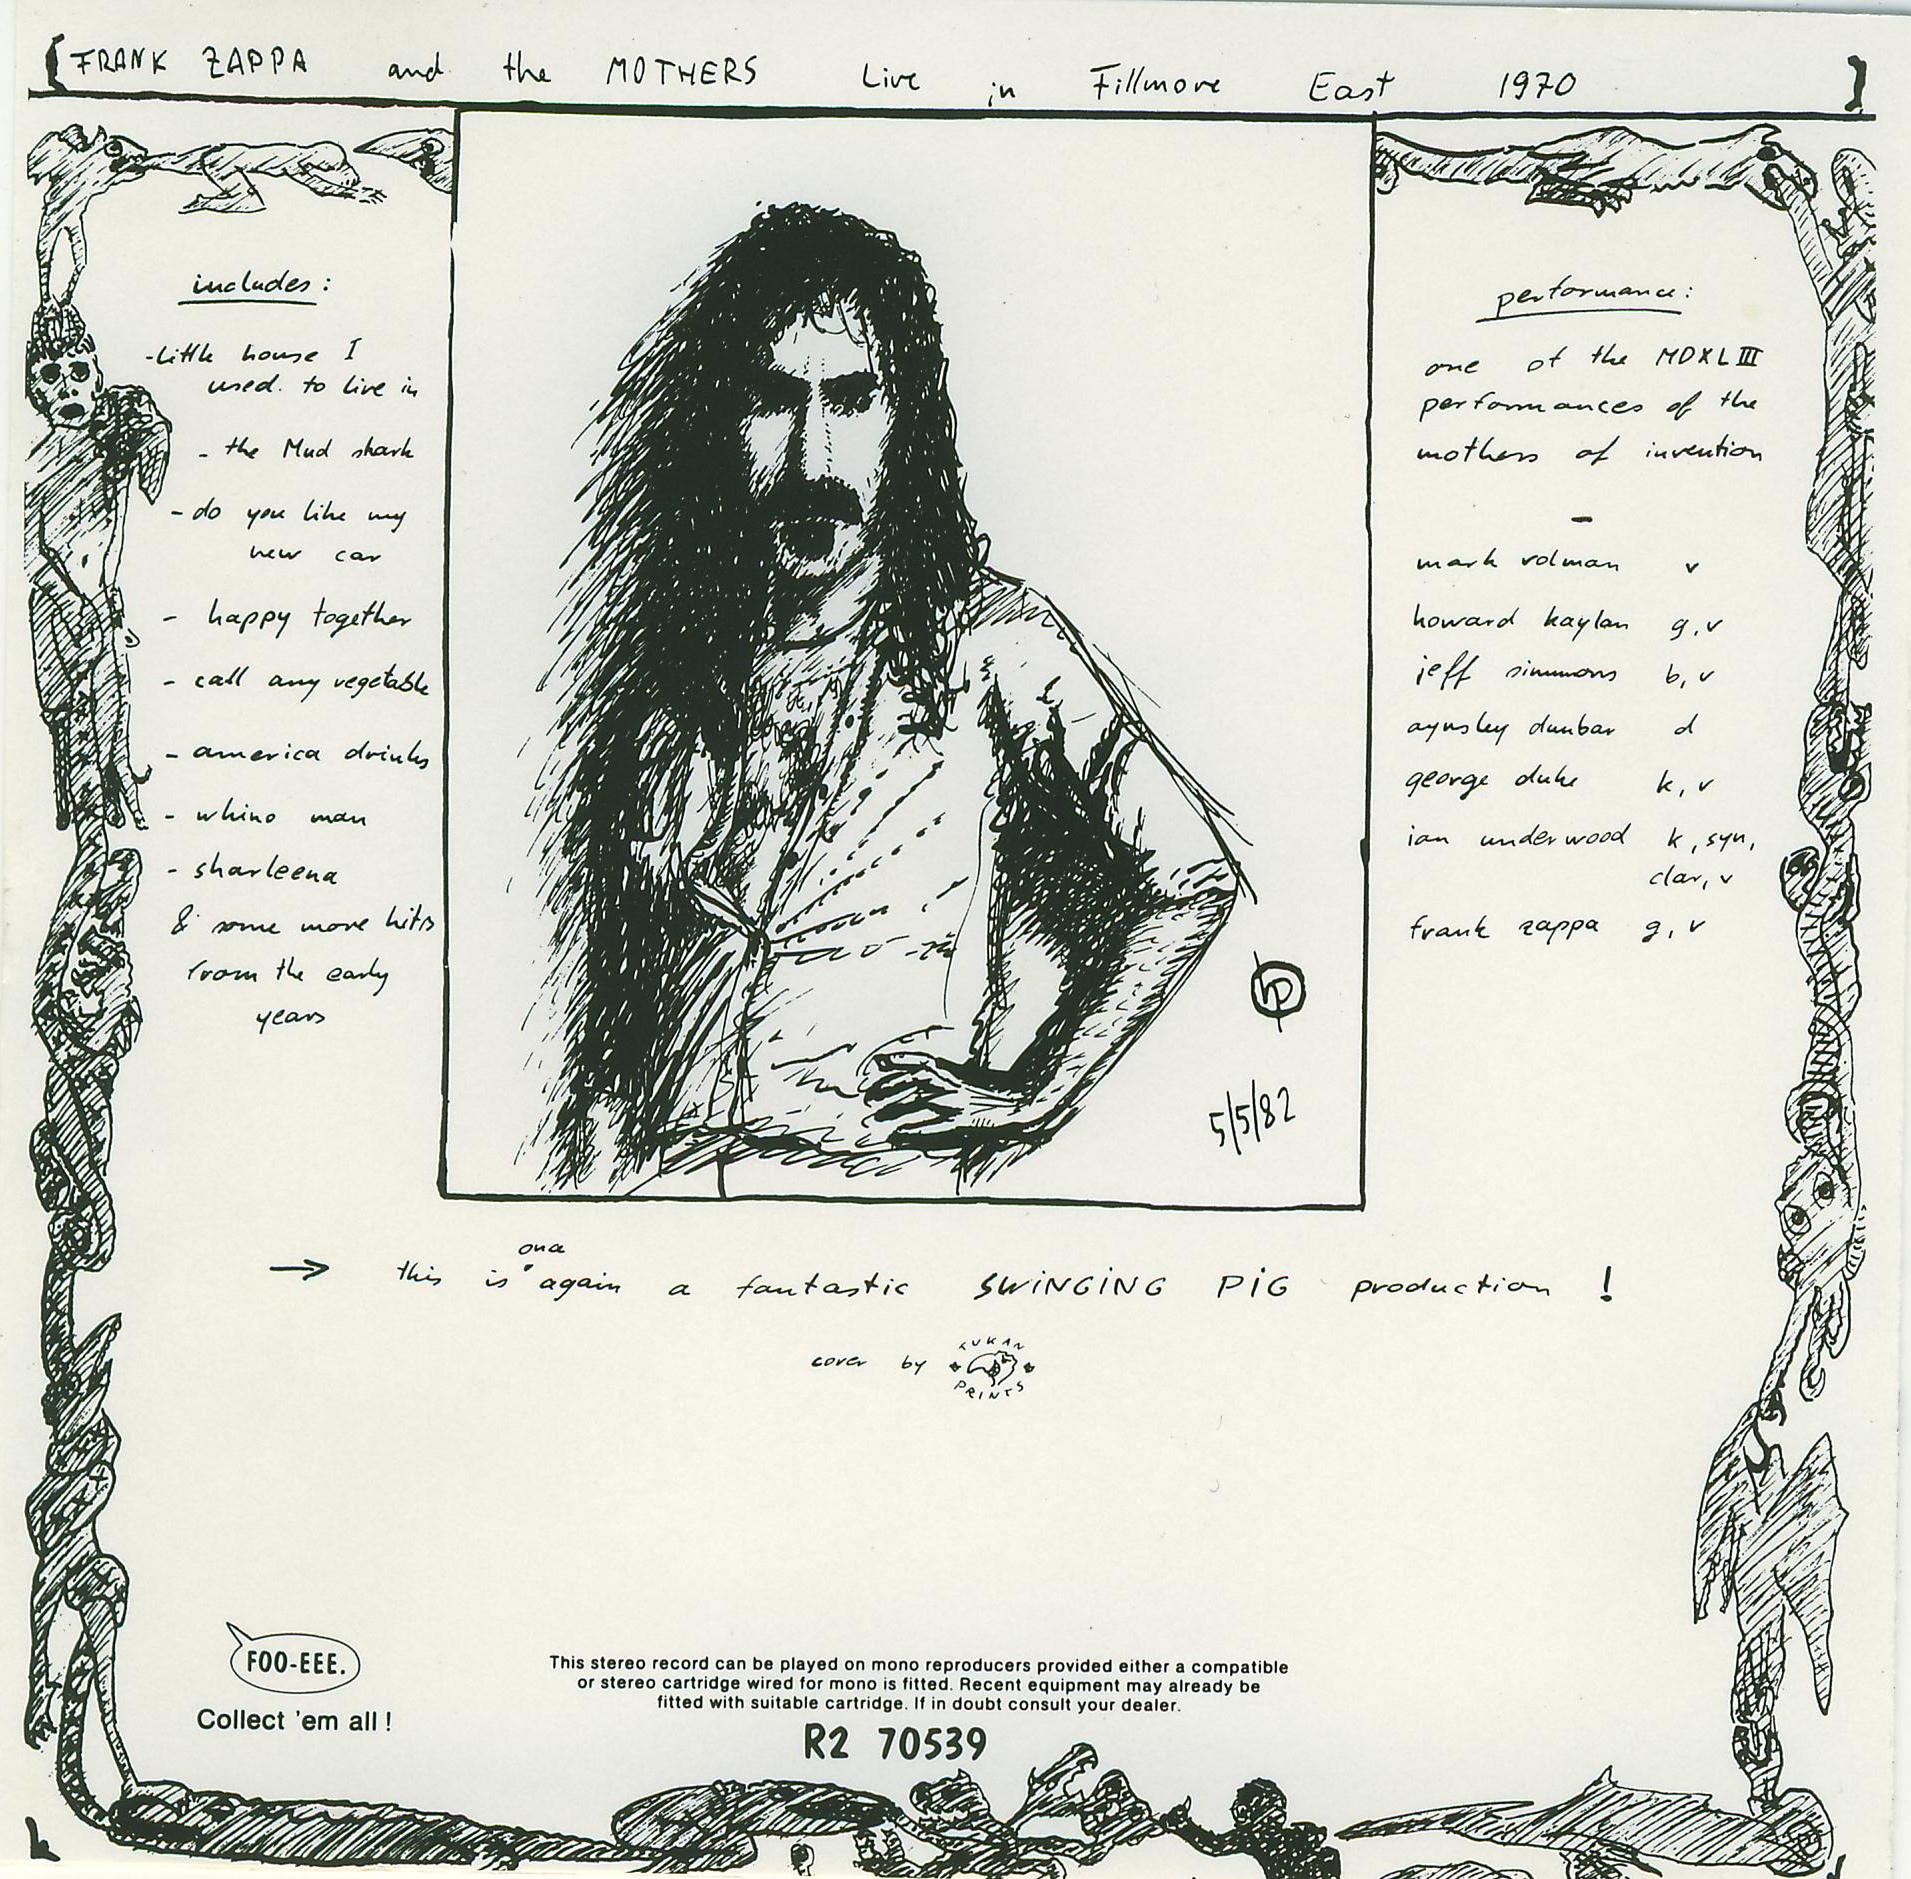 [ FRANK ZAPPA and the MOTHERS Live in Fillmore East 1970 ]
includes:
-Little house I
used to live in
- the Mud shark
- do you like my
new car
- happy together
- call any vegetable
- america drinks
- whino man
- sharleena
& some more hits
from the early
years
performance:
one of the MDXLIII
performances of the
mothers of invention
-
mark volman v
howard kaylan g, v
jeff simmons b, v
aynsley dunbar d
george duke k, v
ian underwood k, syn,
clar, v
frank zappa g, v
5/5/82
once
→ this is again a fantastic SWiNGiNG PiG production !
cover by TUKAN PRINTS
FOO-EEE.
Collect 'em all !
This stereo record can be played on mono reproducers provided either a compatible
or stereo cartridge wired for mono is fitted. Recent equipment may already be
fitted with suitable cartridge. If in doubt consult your dealer.
R2 70539